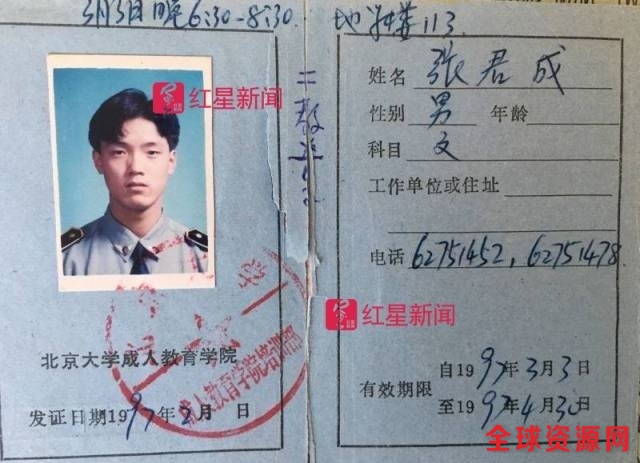 3月3日晚6:30-8:30. 地学楼113.
红星新闻
二教
北京大学成人教育学院
发证日期1997年2月 日
成人教育学院培训部
姓名 张君成
性别 男 年龄
科目 文
工作单位或住址
电话 62751452, 62751478
红星新闻
有效期限
自1997年3月3日
至1997年4月30日
全球资源网